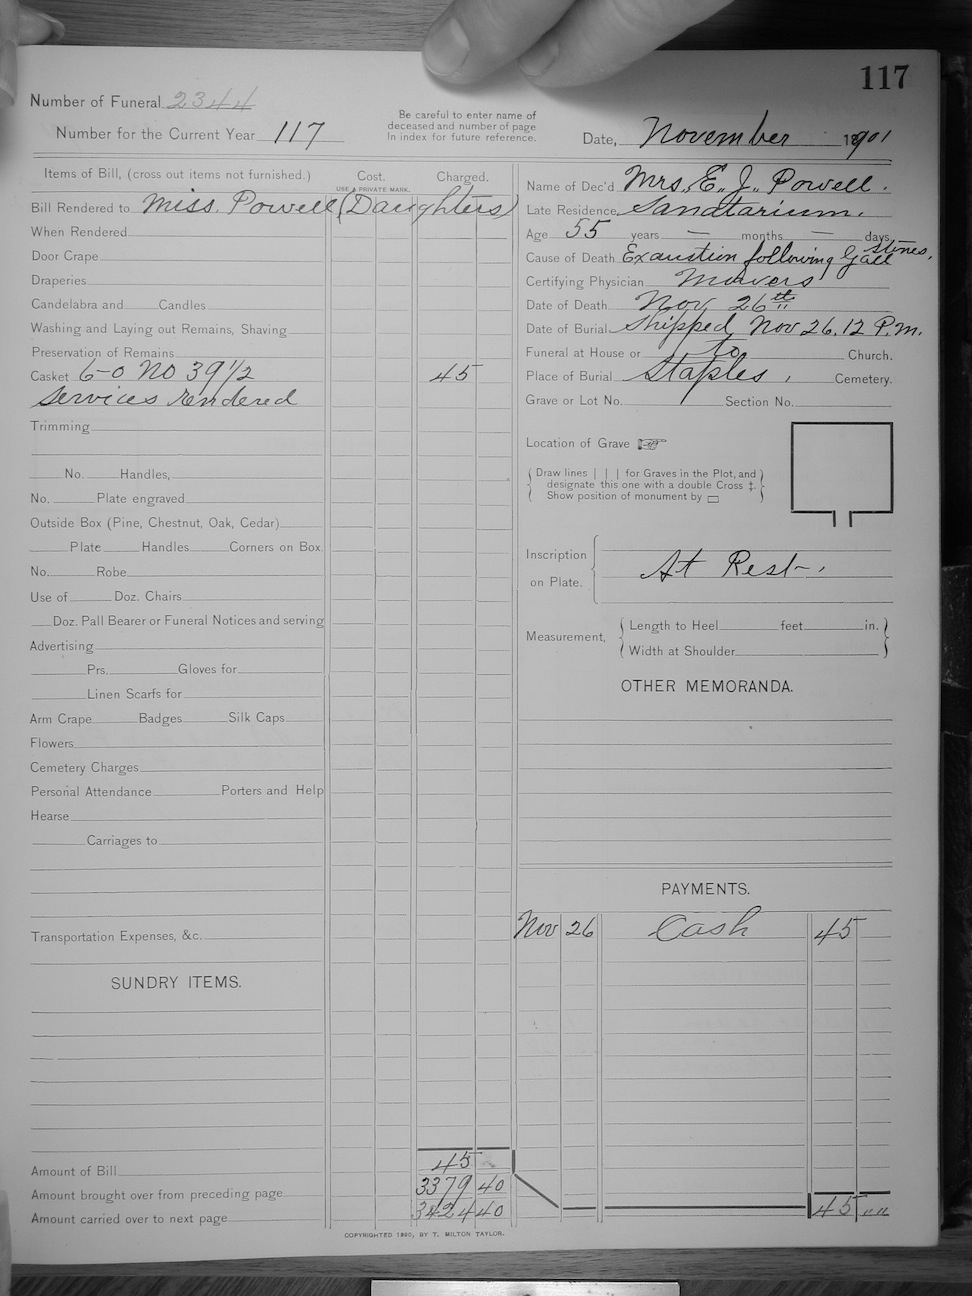 117
Number of Funeral 2344
Number for the Current Year 117
Be careful to enter name of
deceased and number of page
In index for future reference.
Date, November 1901
Items of Bill, (cross out items not furnished.) Cost. Charged.
USE A PRIVATE MARK.
Bill Rendered to Miss. Powell (Daughters)
When Rendered
Door Crape
Draperies
Candelabra and Candles
Washing and Laying out Remains, Shaving
Preservation of Remains
Casket 6-0 No 39 1/2 45
Services rendered
Trimming
No. Handles,
No. Plate engraved
Outside Box (Pine, Chestnut, Oak, Cedar)
Plate Handles Corners on Box
No. Robe
Use of Doz. Chairs
Doz. Pall Bearer or Funeral Notices and serving
Advertising
Prs. Gloves for
Linen Scarfs for
Arm Crape Badges Silk Caps
Flowers
Cemetery Charges
Personal Attendance Porters and Help
Hearse
Carriages to
Transportation Expenses, &c.
SUNDRY ITEMS.
Amount of Bill 45
Amount brought over from preceding page 3379 40
Amount carried over to next page 3424 40
Name of Dec'd Mrs. E. J. Powell.
Late Residence Sanatarium.
Age 55 years — months — days
Cause of Death Exaustion following Gall stones.
Certifying Physician Mowers
Date of Death Nov 26th
Date of Burial Shipped Nov 26. 12 P.m.
Funeral at House or to Church.
Place of Burial Staples, Cemetery.
Grave or Lot No. Section No.
Location of Grave ☞
Draw lines | | | for Graves in the Plot, and
designate this one with a double Cross ‡.
Show position of monument by ▭
Inscription
on Plate. At Rest.
Measurement, Length to Heel feet in.
Width at Shoulder
OTHER MEMORANDA.
PAYMENTS.
Nov 26 Cash 45
45 " "
COPYRIGHTED 1890, BY T. MILTON TAYLOR.